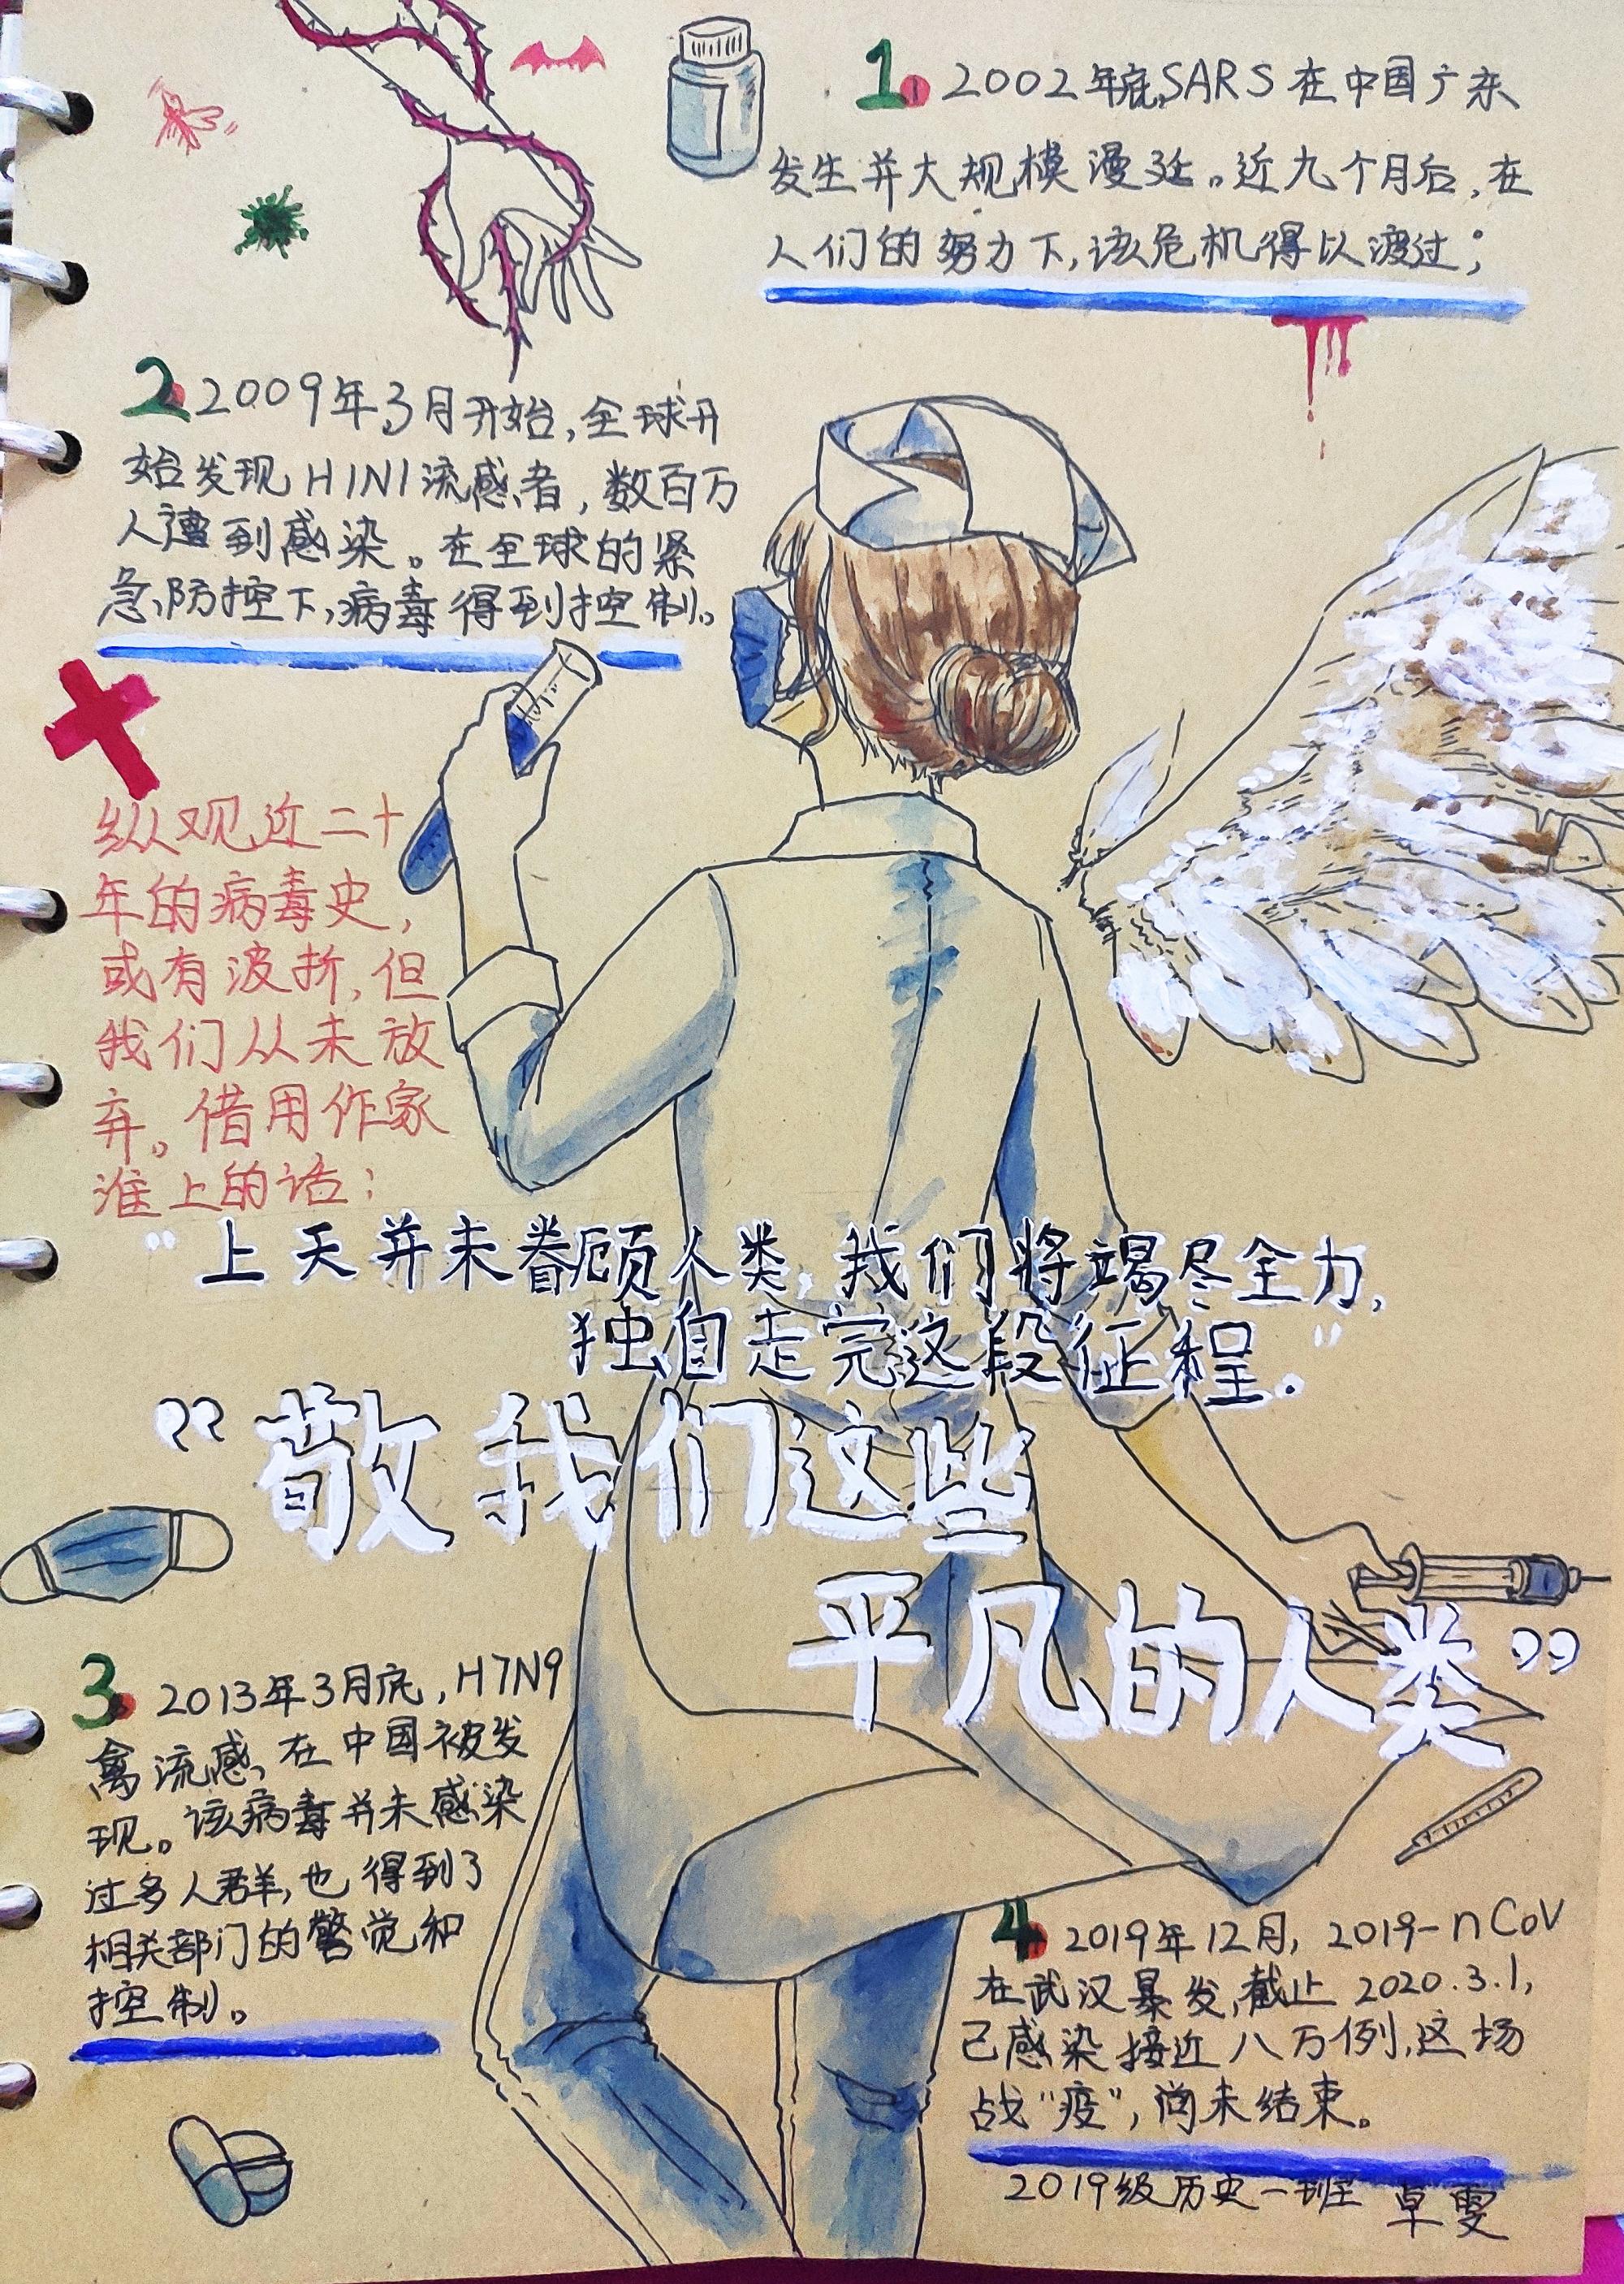 1. 2002年底,SARS在中国广东
发生并大规模漫延。近九个月后,在
人们的努力下,该危机得以渡过;
2.2009年3月开始,全球开
始发现H1N1流感者,数百万
人遭到感染。在全球的紧
急防控下,病毒得到控制。
纵观近二十
年的病毒史,
或有波折,但
我们从未放
弃。借用作家
淮上的话:
"上天并未眷顾人类,我们将竭尽全力,
独自走完这段征程."
"敬我们这些
平凡的人类"
3. 2013年3月底,H7N9
禽流感,在中国被发
现。该病毒并未感染
过多人群,也得到了
相关部门的警觉和
控制。
4. 2019年12月, 2019-nCoV
在武汉暴发,截止2020.3.1,
已感染接近八万例,这场
战"疫",尚未结束。
2019级历史一班 卓雯